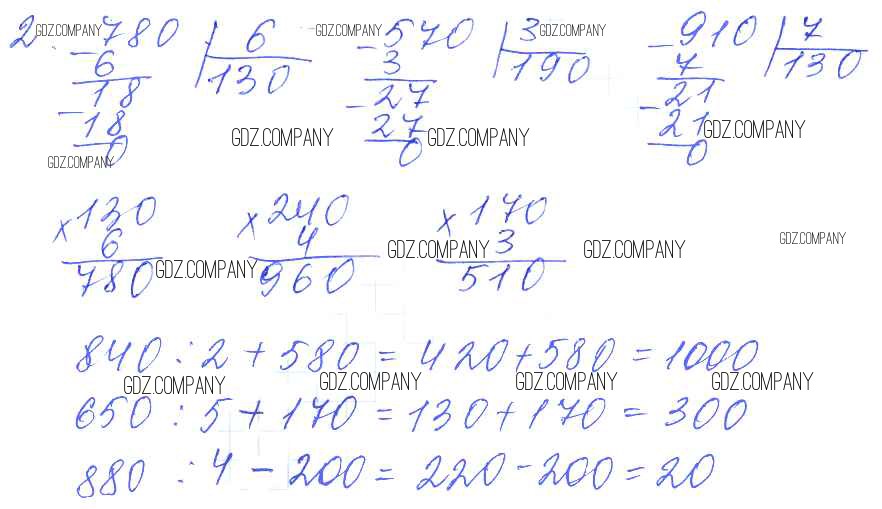 2. -780 | 6 -570 | 3 -910 | 7
6 130 3 190 7 130
18 -27 -21
-18 27 21
0 0 0
×130 ×240 ×170
6 4 3
780 960 510
840 : 2 + 580 = 420 + 580 = 1000
650 : 5 + 170 = 130 + 170 = 300
880 : 4 - 200 = 220 - 200 = 20
GDZ.COMPANY GDZ.COMPANY GDZ.COMPANY
GDZ.COMPANY GDZ.COMPANY GDZ.COMPANY
GDZ.COMPANY
GDZ.COMPANY
GDZ.COMPANY GDZ.COMPANY GDZ.COMPANY
GDZ.COMPANY GDZ.COMPANY GDZ.COMPANY GDZ.COMPANY